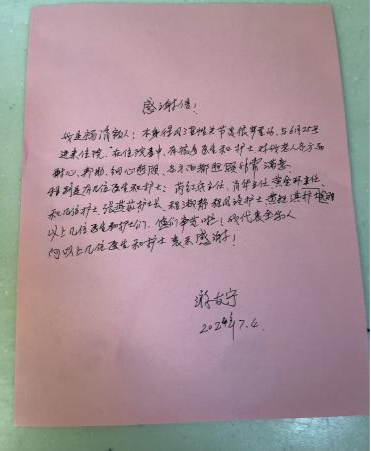 感谢信!
我是福清病人: 本身得风湿性关节炎很严重, 与6月25号
进来住院, 在住院当中, 有很多医生和护士, 对我老人方方面
耐心、帮助、细心照顾, 各方面都照顾非常满意,
特别是有几位医生和护士: 主任、肖华主任、黄 主任,
和几位护士, 张燕 护士长、程淑静 护士,
以上几位医生和护士们, 您们辛苦啦! 我代表全家人
向以上几位医生和护士表示感谢!
游友守
2024年7.2.